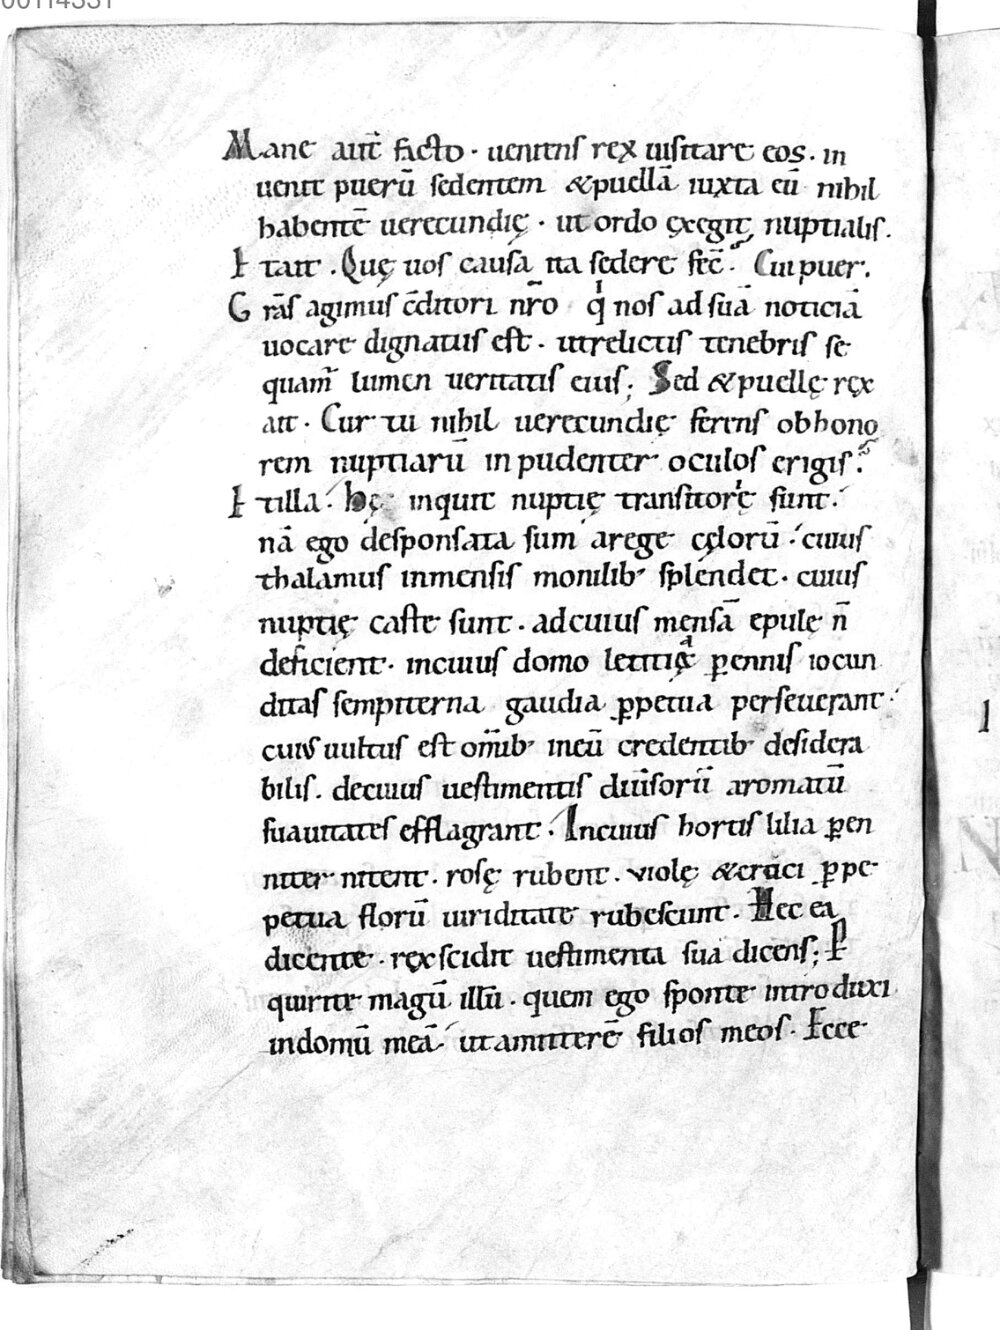 00114331
Mane aut̄ facto · ueniens rex uisitare eos · in
uenit puerū sedentem & puellā iuxta eū nihil
habentē uerecundię · ut ordo ęxegit nuptialis .
Et ait . Quę uos causa ita sedere fec̄ . Cui puer .
Grās agimus c̄ditori nr̄o qi nos ad suā noticiā
uocare dignatus est · ut relictis tenebris se
quam̄ lumen ueritatis eius ; Sed & puellę ręx
ait · Cur tu nihil uerecundię ferens ob hono
rem nuptiarū inpudenter oculos erigis .
Et illa . hę inquit nuptię transitorę sunt .
nā ego desponsata sum a rege cęlorū . cuius
thalamus inmensis monilib' splendet · cuius
nuptię caste sunt · ad cuius mensā epulę n̄
deficient · in cuius domo letitię ꝑennis iocun
ditas sempiterna gaudia ꝑpetua perseuerant .
cuius uultus est om̄ib' in eū credentib' desidera
bilis . de cuius uestimentis diuīsorū aromatū
suauitates efflagrant . In cuius hortis lilia ꝑen
niter nitent . rosę rubent . violę & croci ꝑpe
petua florū uiriditate rubescunt . Hec ea
dicente . ręx scidit uestimenta sua dicens ; P
quirite magū illū . quem ego sponte introduxi
in domū meā . ut amitterē filios meos . Ecce
l